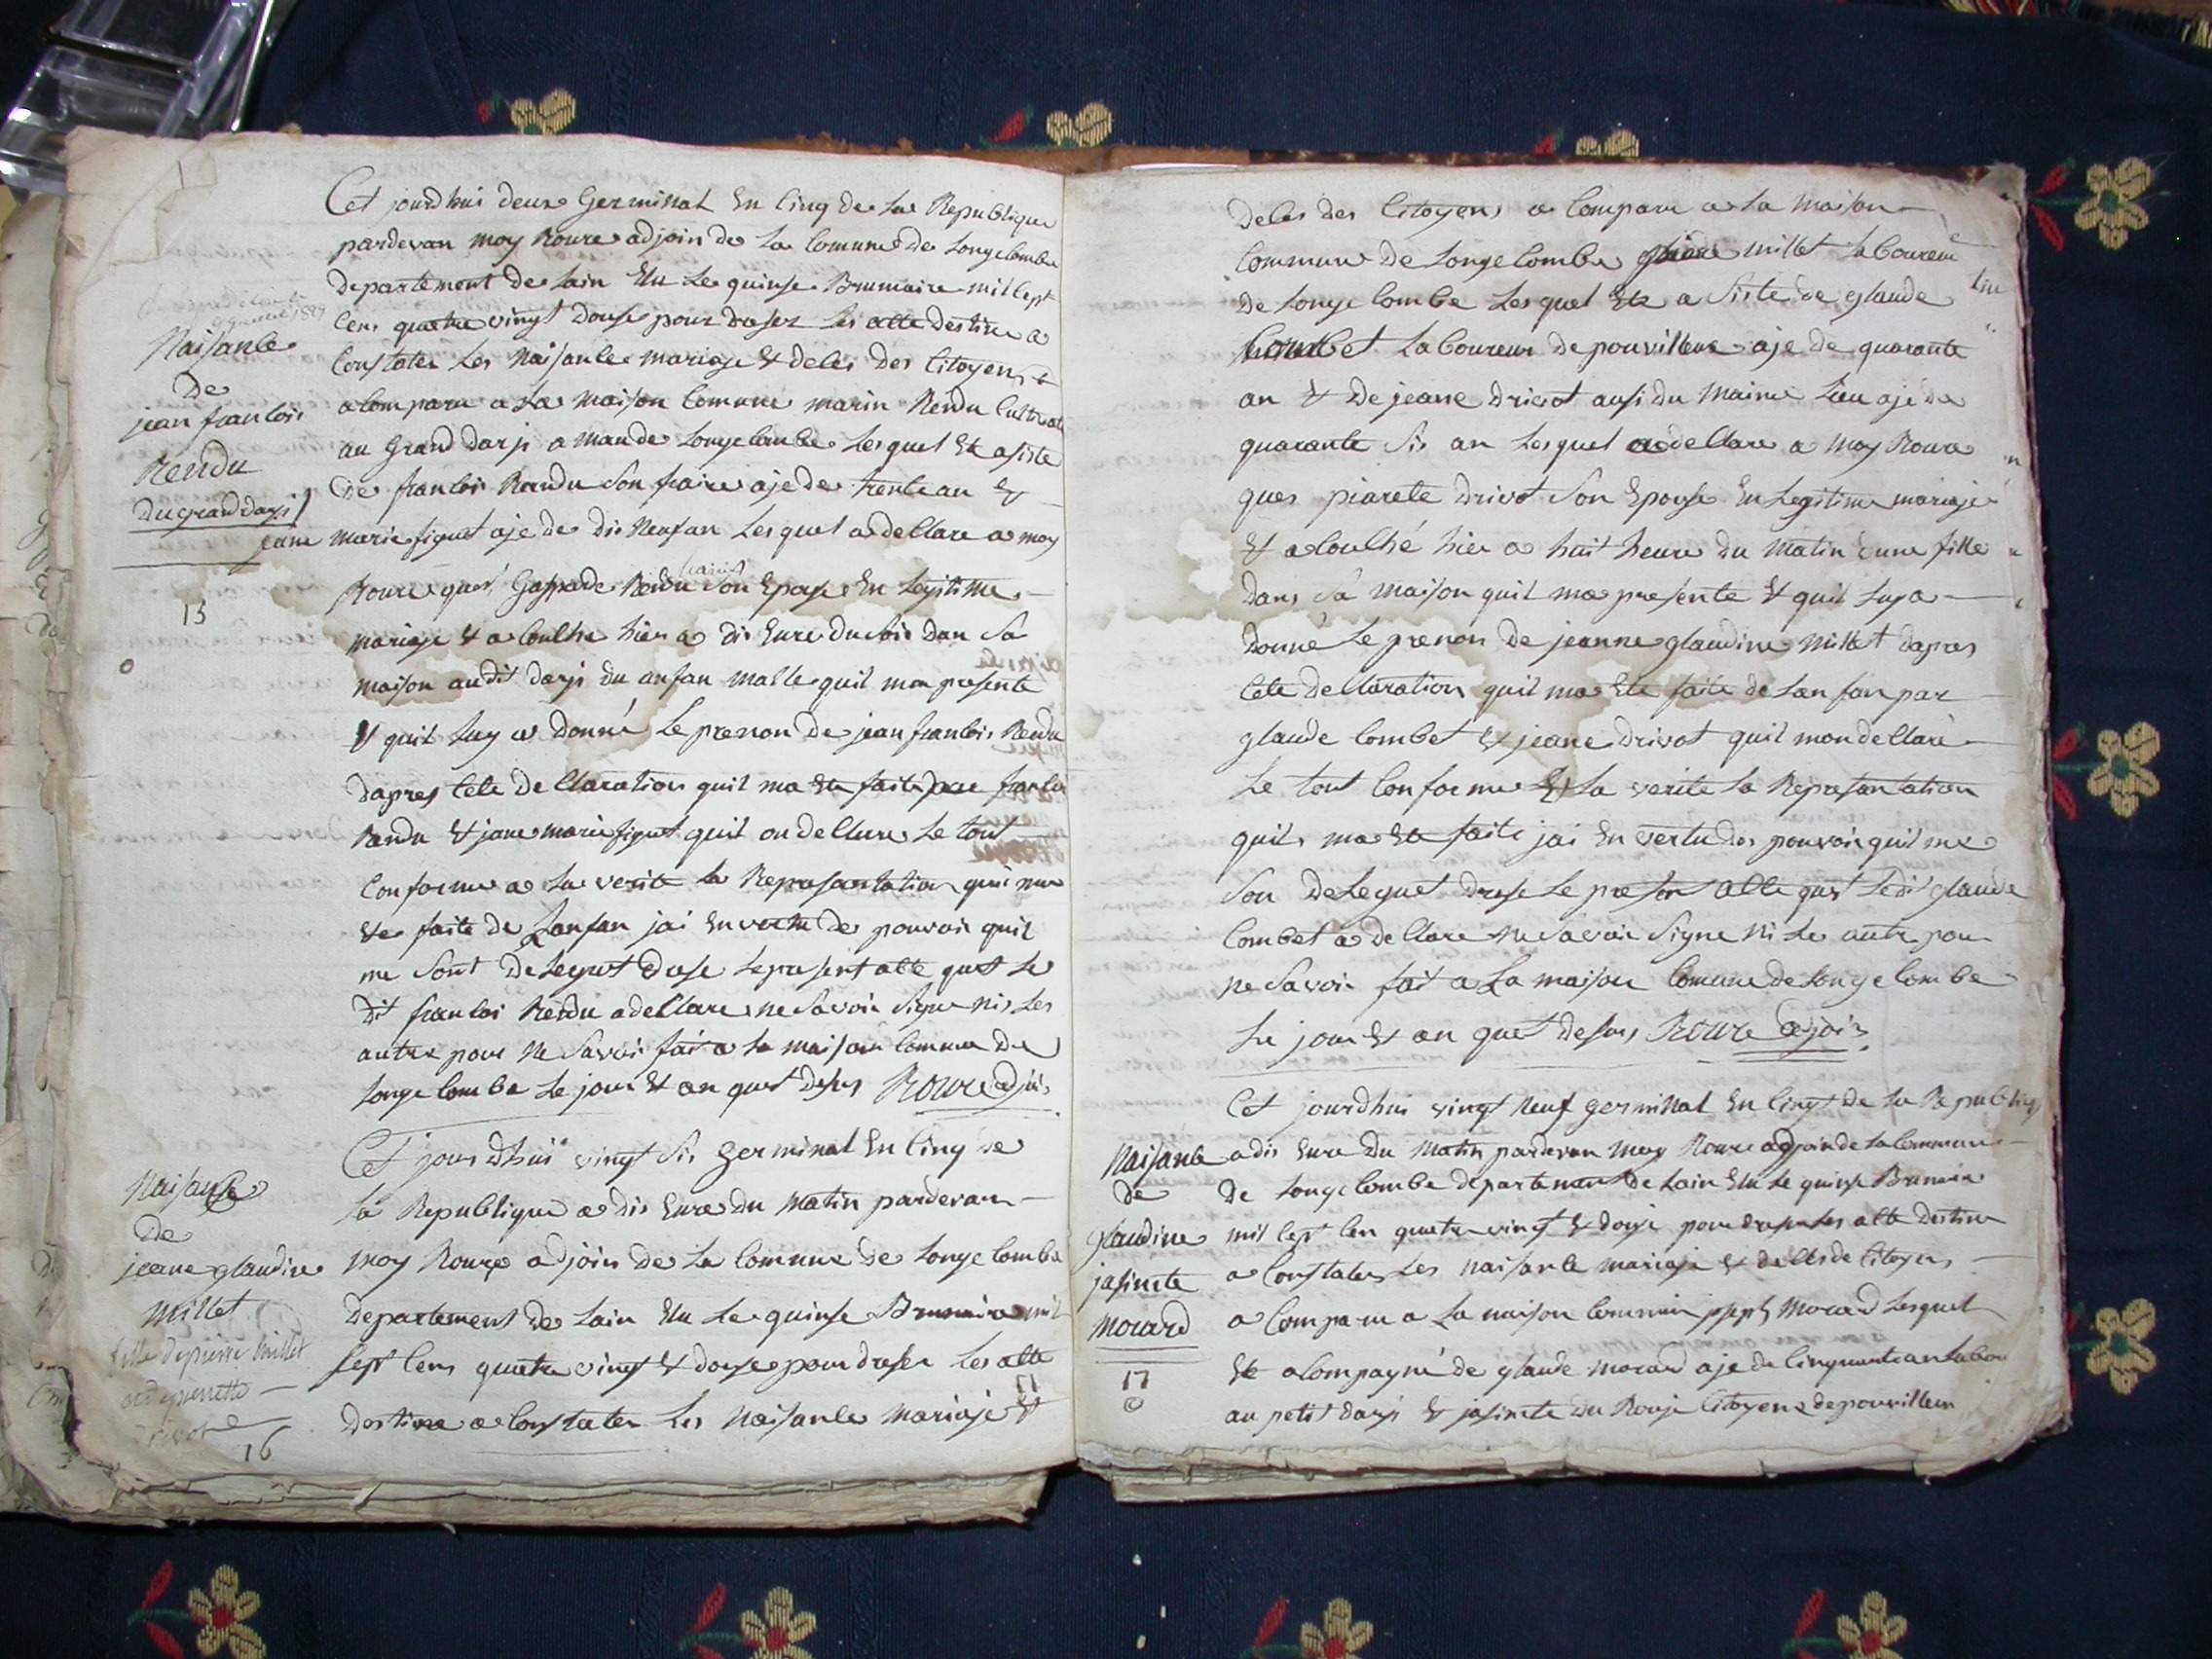 Cet jourdhui deux Germinal En Cinq de la Republique
pardevan moy Roure adjoin de la Comune de Longecombe
departement de Lain Elu Le quinse Brumaire mil sept
Cens quatre vingt douse pour dreser Les acte destine a
Constater Les Naisance mariage & deces des Citoyens
a Comparu a La maison Comune marin Rendu Cultivat
au Grand darji Longecombe Lesquel Ete asiste
De francois Randu Son fraire aje de trente an &
jeane marie figuet aje de dis Neuf an Lesquel a declare a moy
Roure ques Gasparde Son Epouse En Legitime
mariage & a Couche hier a dis Eure du soir dan Sa
maison audit darji du anfan malle quil ma presente
& quil Luy a donné Le prenon de jean francois Rendu
dapres Cete declaration quil ma Ete faite par francoi
Randu & jane marie figuet quil on declare Le tout
Conforme a La verite La Represantation qui me
Ete faite de Lanfan jai En vertu des pouvoir quil
me Sont Deleguet drese Le present acte quet Le
dit francoi Rendu a declare ne Savoir Signe ni Les
autre pour Ne Savoir fait a la maison Comune de
Longe Combe Le jour & an quet desus Roure adjoin
Naisance
De
jean francois
Rendu
Du grand darji
15
Cet jourdhui vingt Sis germinal En Cinq de
La Republique a dis Eure du matin pardevan
moy Roure adjoin de La Comune de Longe Combe
departement de Lain Elu Le quinse Brumaire mil
sept Cens quatre vingt & douse pour dreser Les acte
destine a Constater Les Naisance Mariaje &
Naisance
De
jeane glaudine
Millet
fille de pierre Millet
et de pierrette
Drivot
16
deces des Citoyens a Comparu a La maison
Commune de Longe Combe millet Laboureur
de Longe Combe Lesquel Ete a Siste de glaude
Combet Laboureur de pouvilleux aje de quarante
an & De jeane drivot ausi du maime Lieu aje de
quarante Sis an Lesquel a declare a moy Roure
ques piarete Drivot Son Epouse En Legitime mariaje
& a Couché hier a huit heure du matin dune fille
dans sa maison quil ma presente & quil Luy a
donné Le prenon de jeanne glaudine Millet dapres
Cete declaration quil ma Ete faite de Lanfan par
glaude Combet & jeane drivot quil mon declaré
Le tout Conforme a La verite La Represantation
quil ma Ete faite jai En vertu des pouvoir quil me
Son Deleguet drese Le preson acte quet Ledit glaude
Combet a declare ne Savoir Signe Ni Le autre pour
ne Savoir fait a La maison Comune de Longe Combe
Le jour & an quet desus Roure adjoin
Cet jourdhui vingt Neuf germinal En Cinqt de La Republiq
a dis Eure du Matin pardevan moy Roure adjoin de la Commune
de Longe Combe departement de Lain Elu Le quinse Brumaire
mil sept Cen quatre vingt & douse pour dreser Les acte destine
a Constater Les Naisance mariaje & deces de Citoyens
a Comparu a La maison Commune joseph Morard Lesquel
Ete a Compagné de glaude morard aje de Cinquante an Labou
au petit darji & jasinete du Rouje Citoyene de pouvilleux
Naisance
de
glaudine
jasinete
Morard
17